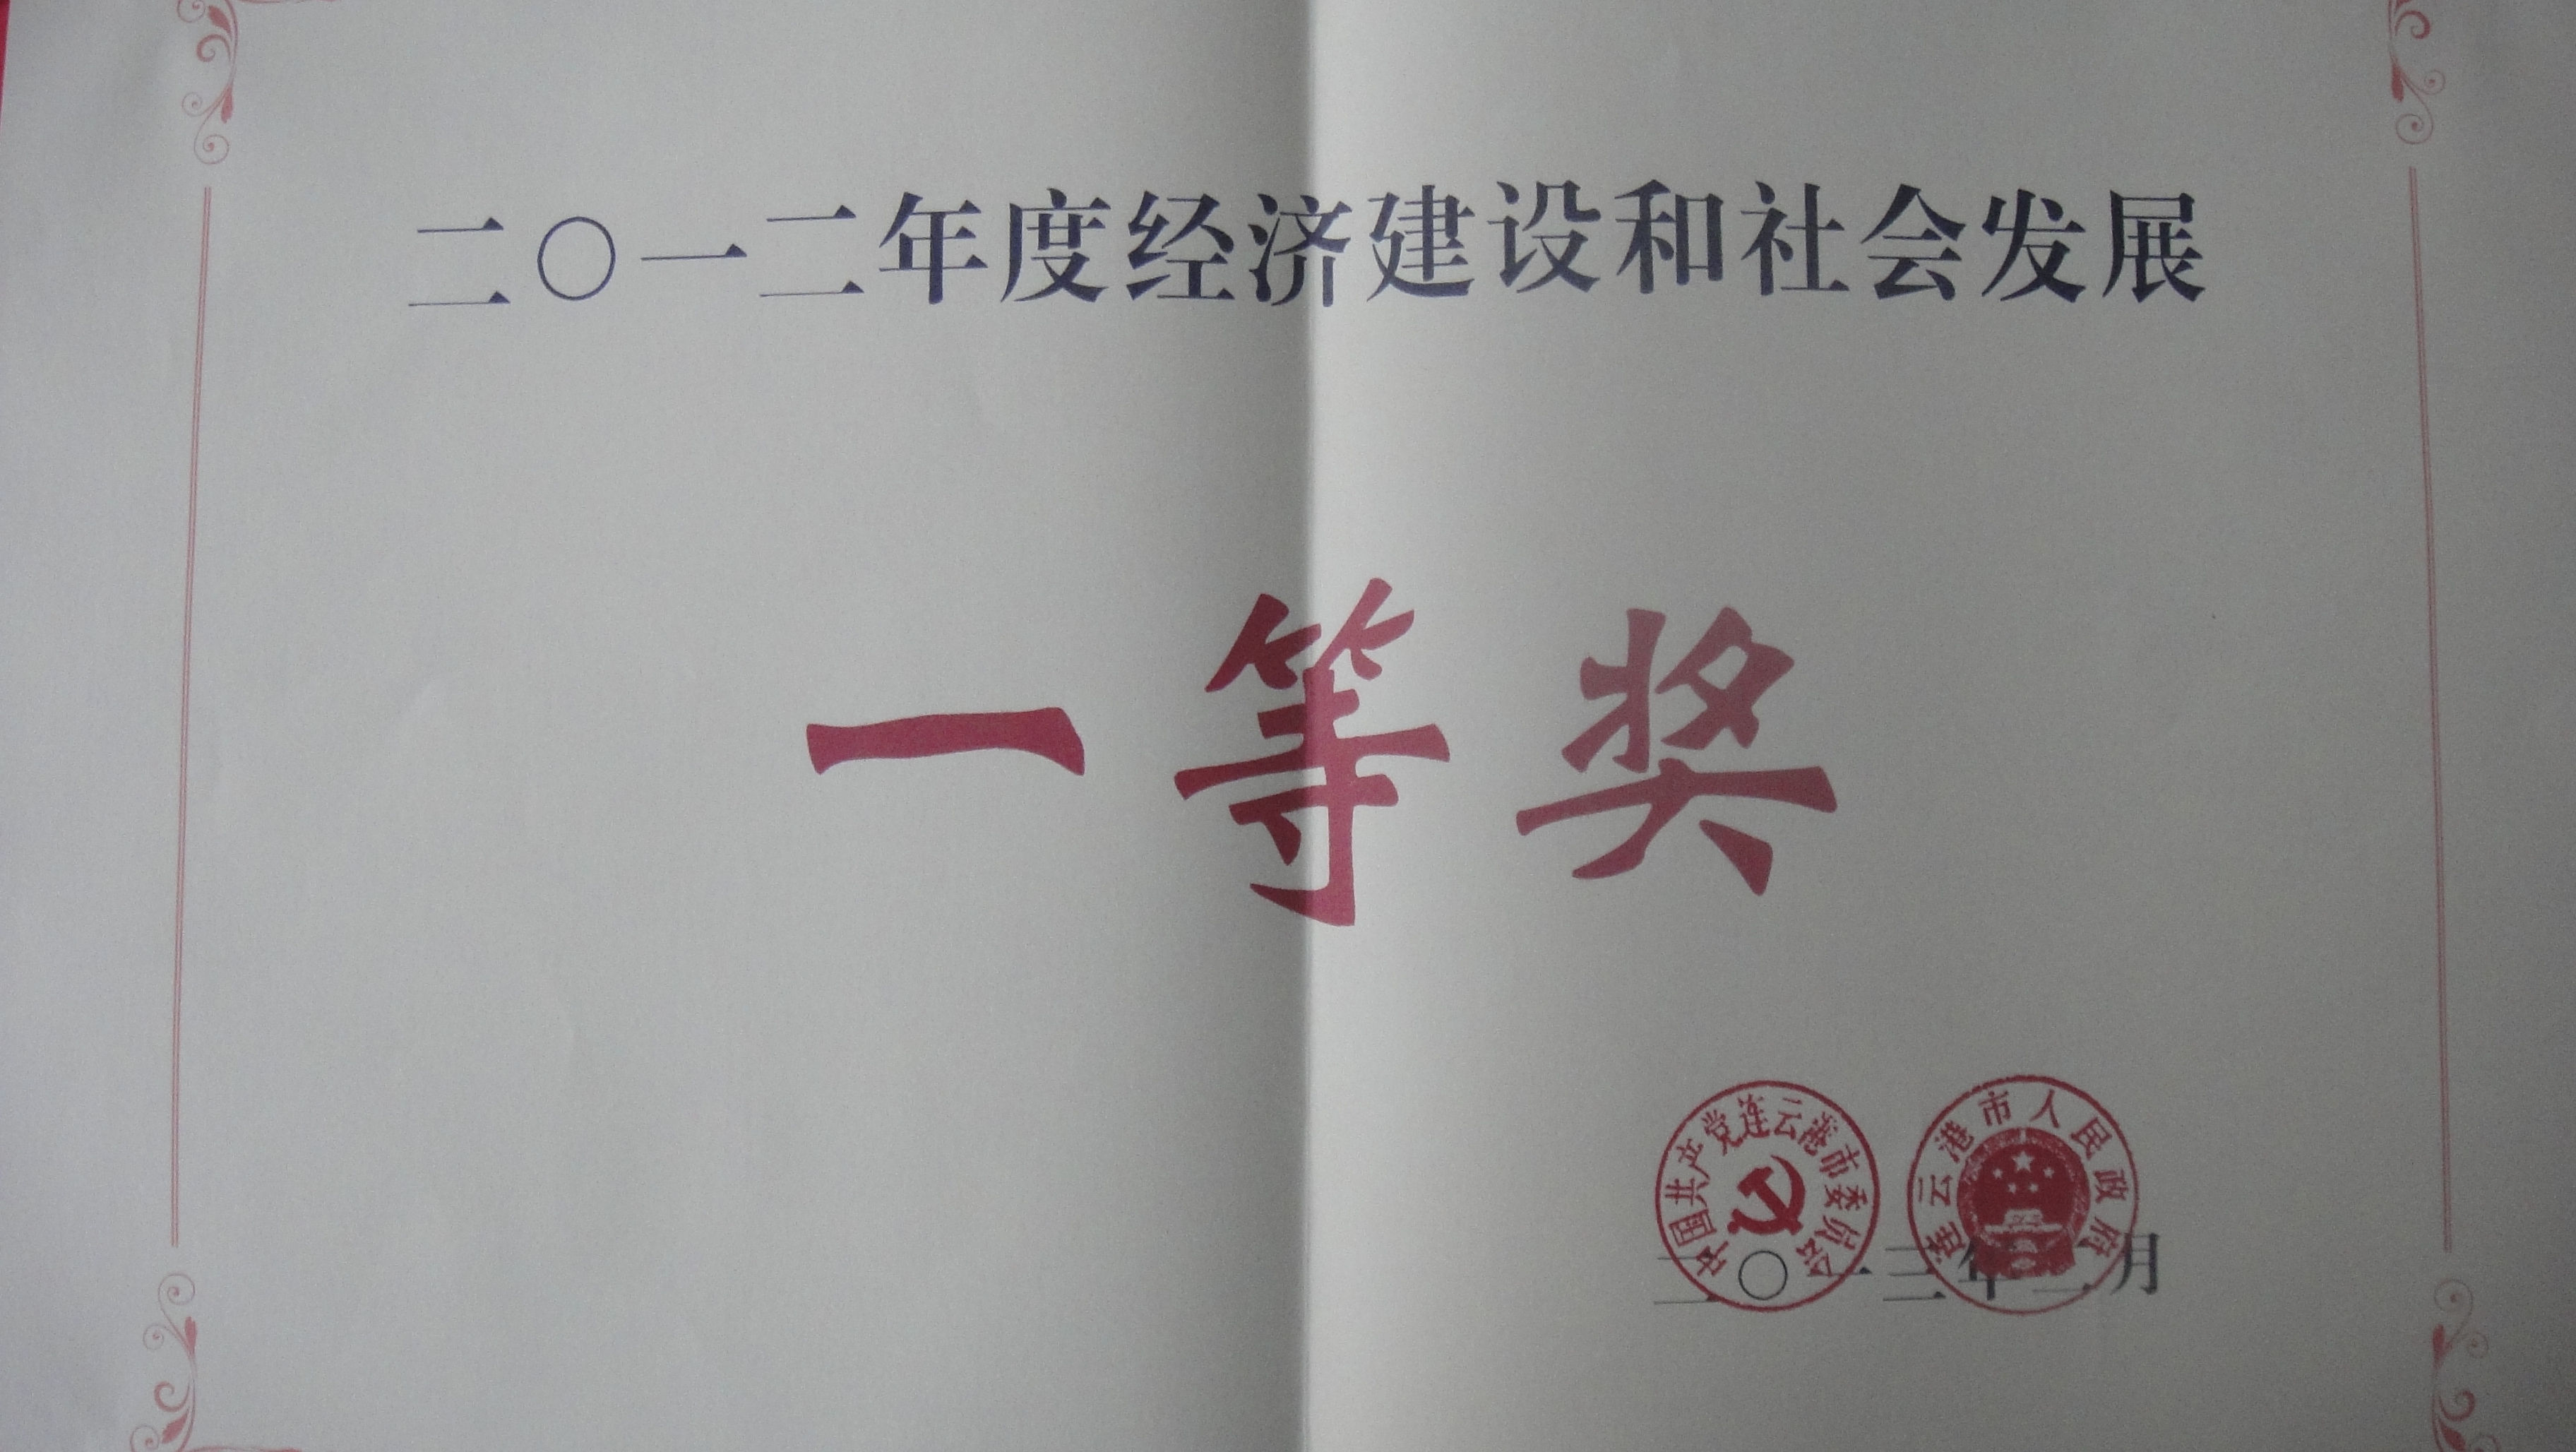 二〇一二年度经济建设和社会发展
一等奖
中国共产党连云港市委员会
连云港市人民政府
二〇一三年二月